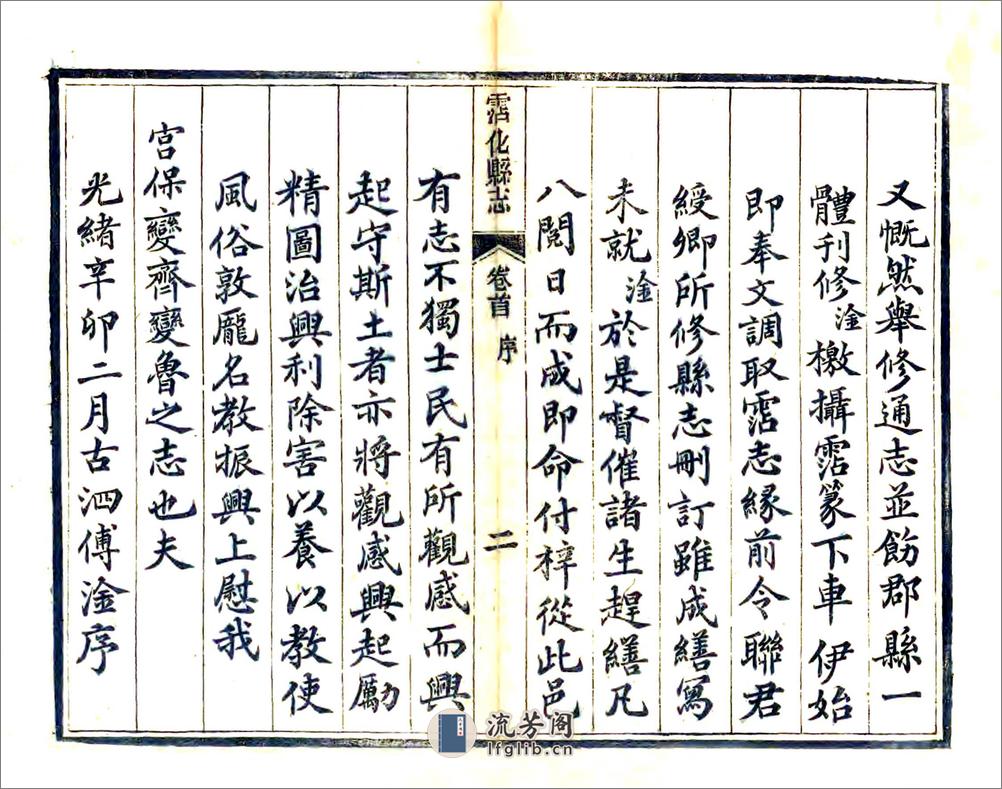 又慨然舉修通志並飭郡縣一
體刊修淦檄攝霑篆下車伊始
即奉文調取霑志緣前令聯君
綬卿所修縣志刪訂雖成繕寫
未就淦於是督催諸生趕繕凡
八閱日而成即命付梓從此邑
霑化縣志 卷首 序 二
有志不獨士民有所觀感而興
起守斯土者亦將觀感興起勵
精圖治興利除害以養以教使
風俗敦龐名教振興上慰我
宮保變齊變魯之志也夫
光緒辛卯二月古泗傅淦序
流芳阁
lfglib.cn